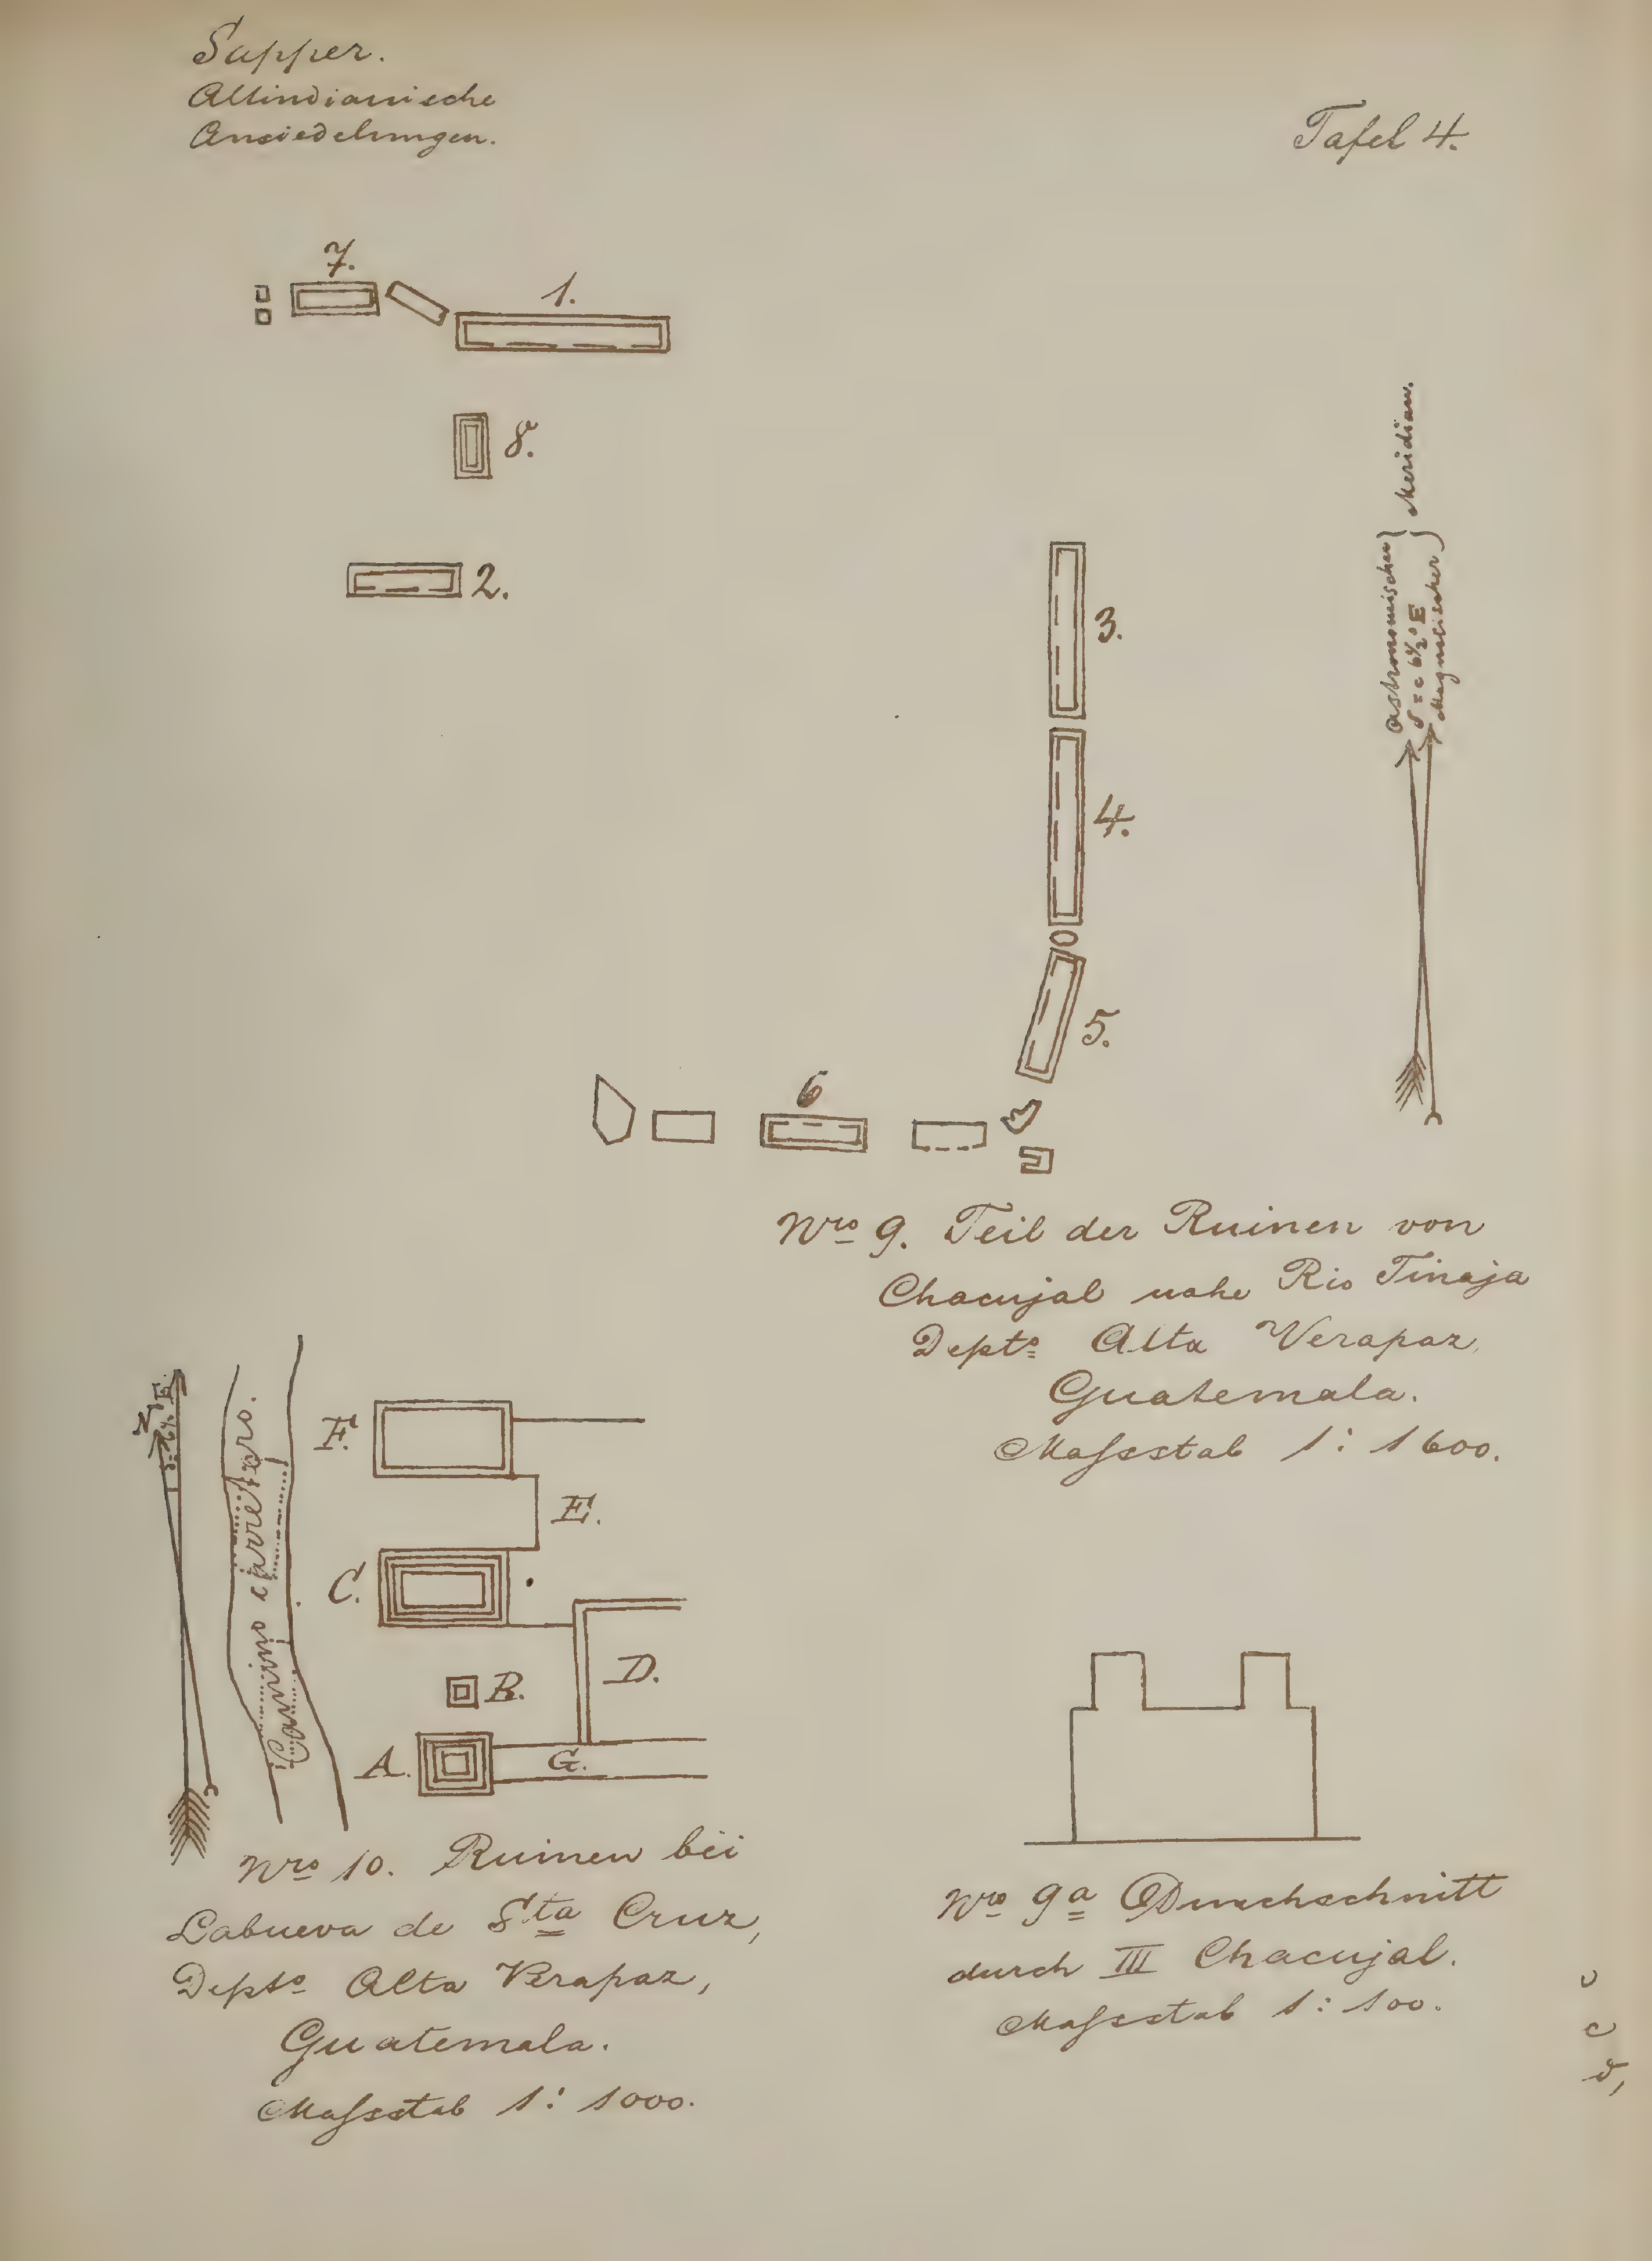 Sapper.
Altindianische
Ansiedelungen.
Tafel 4.
7.
1.
8.
2.
3.
4.
5.
6
astronomischer } Meridian.
δ = c 6½° E
Magnetischer
Nro 9. Teil der Ruinen von
Chacujal nahe Rio Tinaja
Depto Alta Verapaz,
Guatemala.
Mafsstab 1 : 1600.
N
δ = 6½° E
Camino carretero.
F.
E.
C.
D.
B.
A.
G.
Nro 10. Ruinen bei
Labueva de Sta Cruz,
Depto Alta Verapaz,
Guatemala.
Mafsstab 1 : 1000.
Nro 9a Durchschnitt
durch III Chacujal.
Mafsstab 1 : 100.